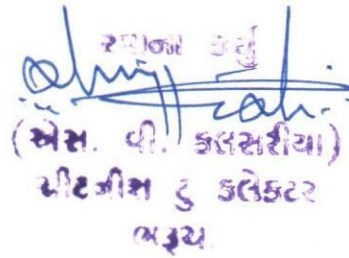 રવાના કર્યું
(એસ. વી. કલસરીયા)
ચીટનીશ ટુ કલેકટર
ભરૂચ.